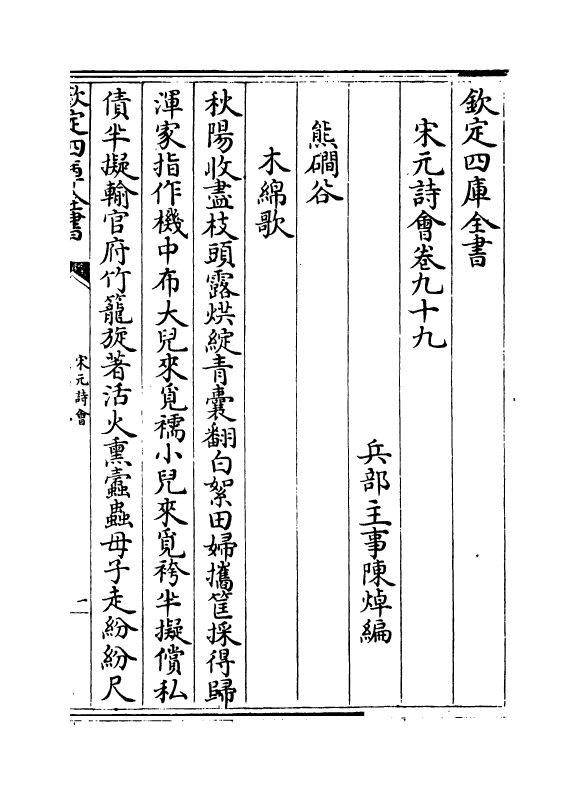 欽定四庫全書
宋元詩會卷九十九
兵部主事陳焯編
熊礀谷
木綿歌
秋陽收盡枝頭露烘綻青囊翻白絮田婦攜筐採得歸
渾家指作機中布大兒來覓襦小兒來覓袴半擬償私
債半擬輸官府竹籠旋著活火熏蠧蟲母子走紛紛尺
欽定四庫全書
宋元詩會
二